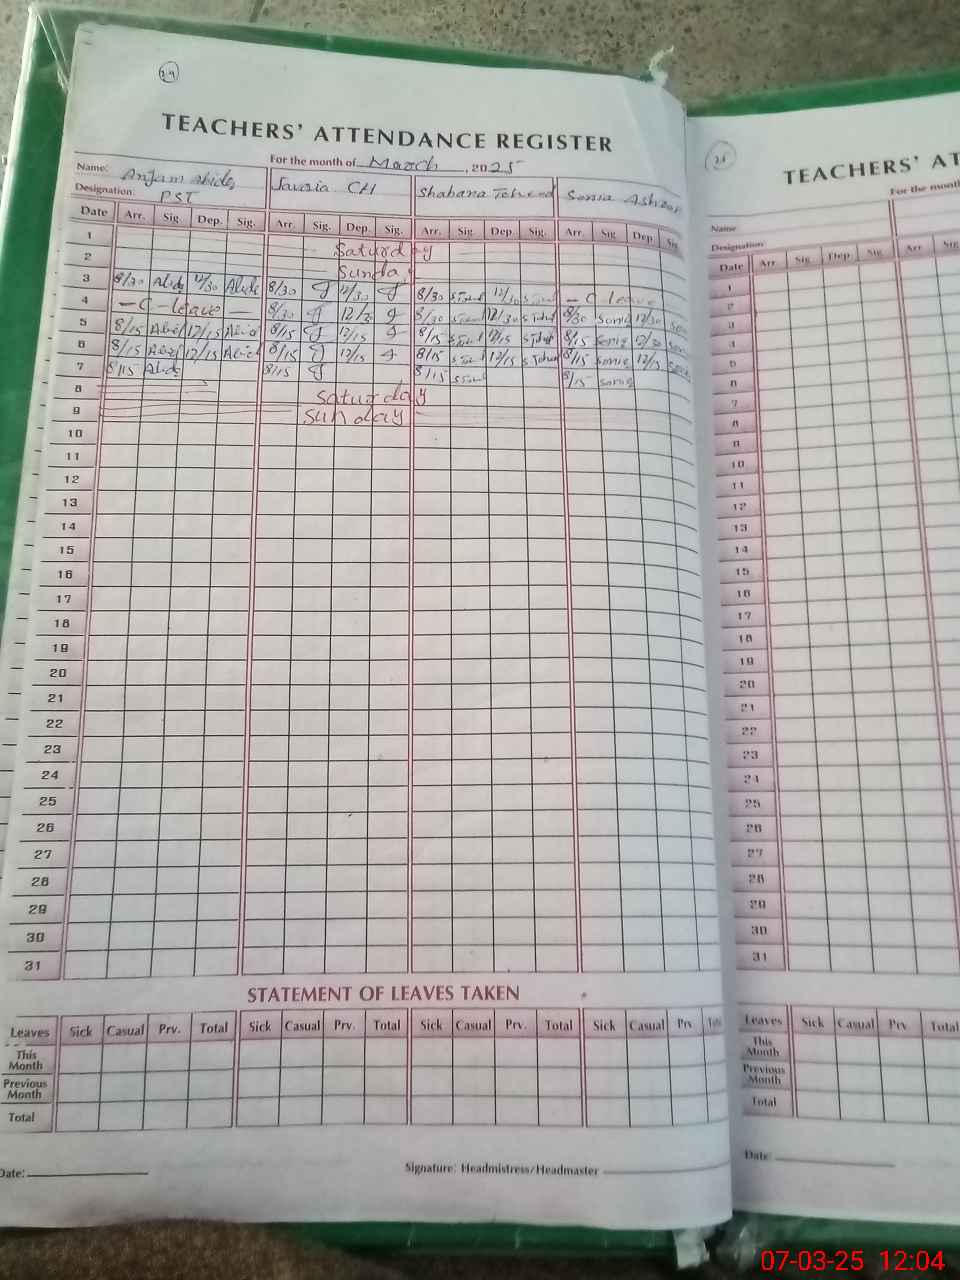 24
TEACHERS' ATTENDANCE REGISTER
For the month of March, 2025
Name: Anjam Abida Javaria CH Shabana Sonia
Designation: PST
Date Arr. Sig. Dep. Sig. Arr. Sig. Dep. Sig. Arr. Sig. Dep. Sig. Arr. Sig. Dep. Sig.
1 Saturday
2 Sunday
3 8/30 Abida 12/30 Abida 8/30 12/30 8/30 12/30 - C leave
4 - C - leave - 8/30 12/30 8/30 12/30 8/30 Sonia 12/30
5 8/15 Abid 12/15 Abid 8/15 12/15 8/15 12/15 8/15 Sonia
6 8/15 Abid 12/15 Abid 8/15 12/15 8/15 12/15 8/15 Sonia 12/15
7 8/15 Abida 8/15 8/15 8/15 Sonia
8 Saturday
9 Sunday
10
11
12
13
14
15
16
17
18
19
20
21
22
23
24
25
26
27
28
29
30
31
STATEMENT OF LEAVES TAKEN
Leaves Sick Casual Prv. Total Sick Casual Prv. Total Sick Casual Prv. Total Sick Casual Prv.
This Month
Previous Month
Total
Date:
Signature: Headmistress/Headmaster
25
TEACHERS' AT
For the month
Name
Designation:
Date Arr. Sig. Dep. Sig. Arr. Sig.
1
2
3
4
5
6
7
8
9
10
11
12
13
14
15
16
17
18
19
20
21
22
23
24
25
26
27
28
29
30
31
Leaves Sick Casual Prv. Total
This Month
Previous Month
Total
Date:
07-03-25 12:04